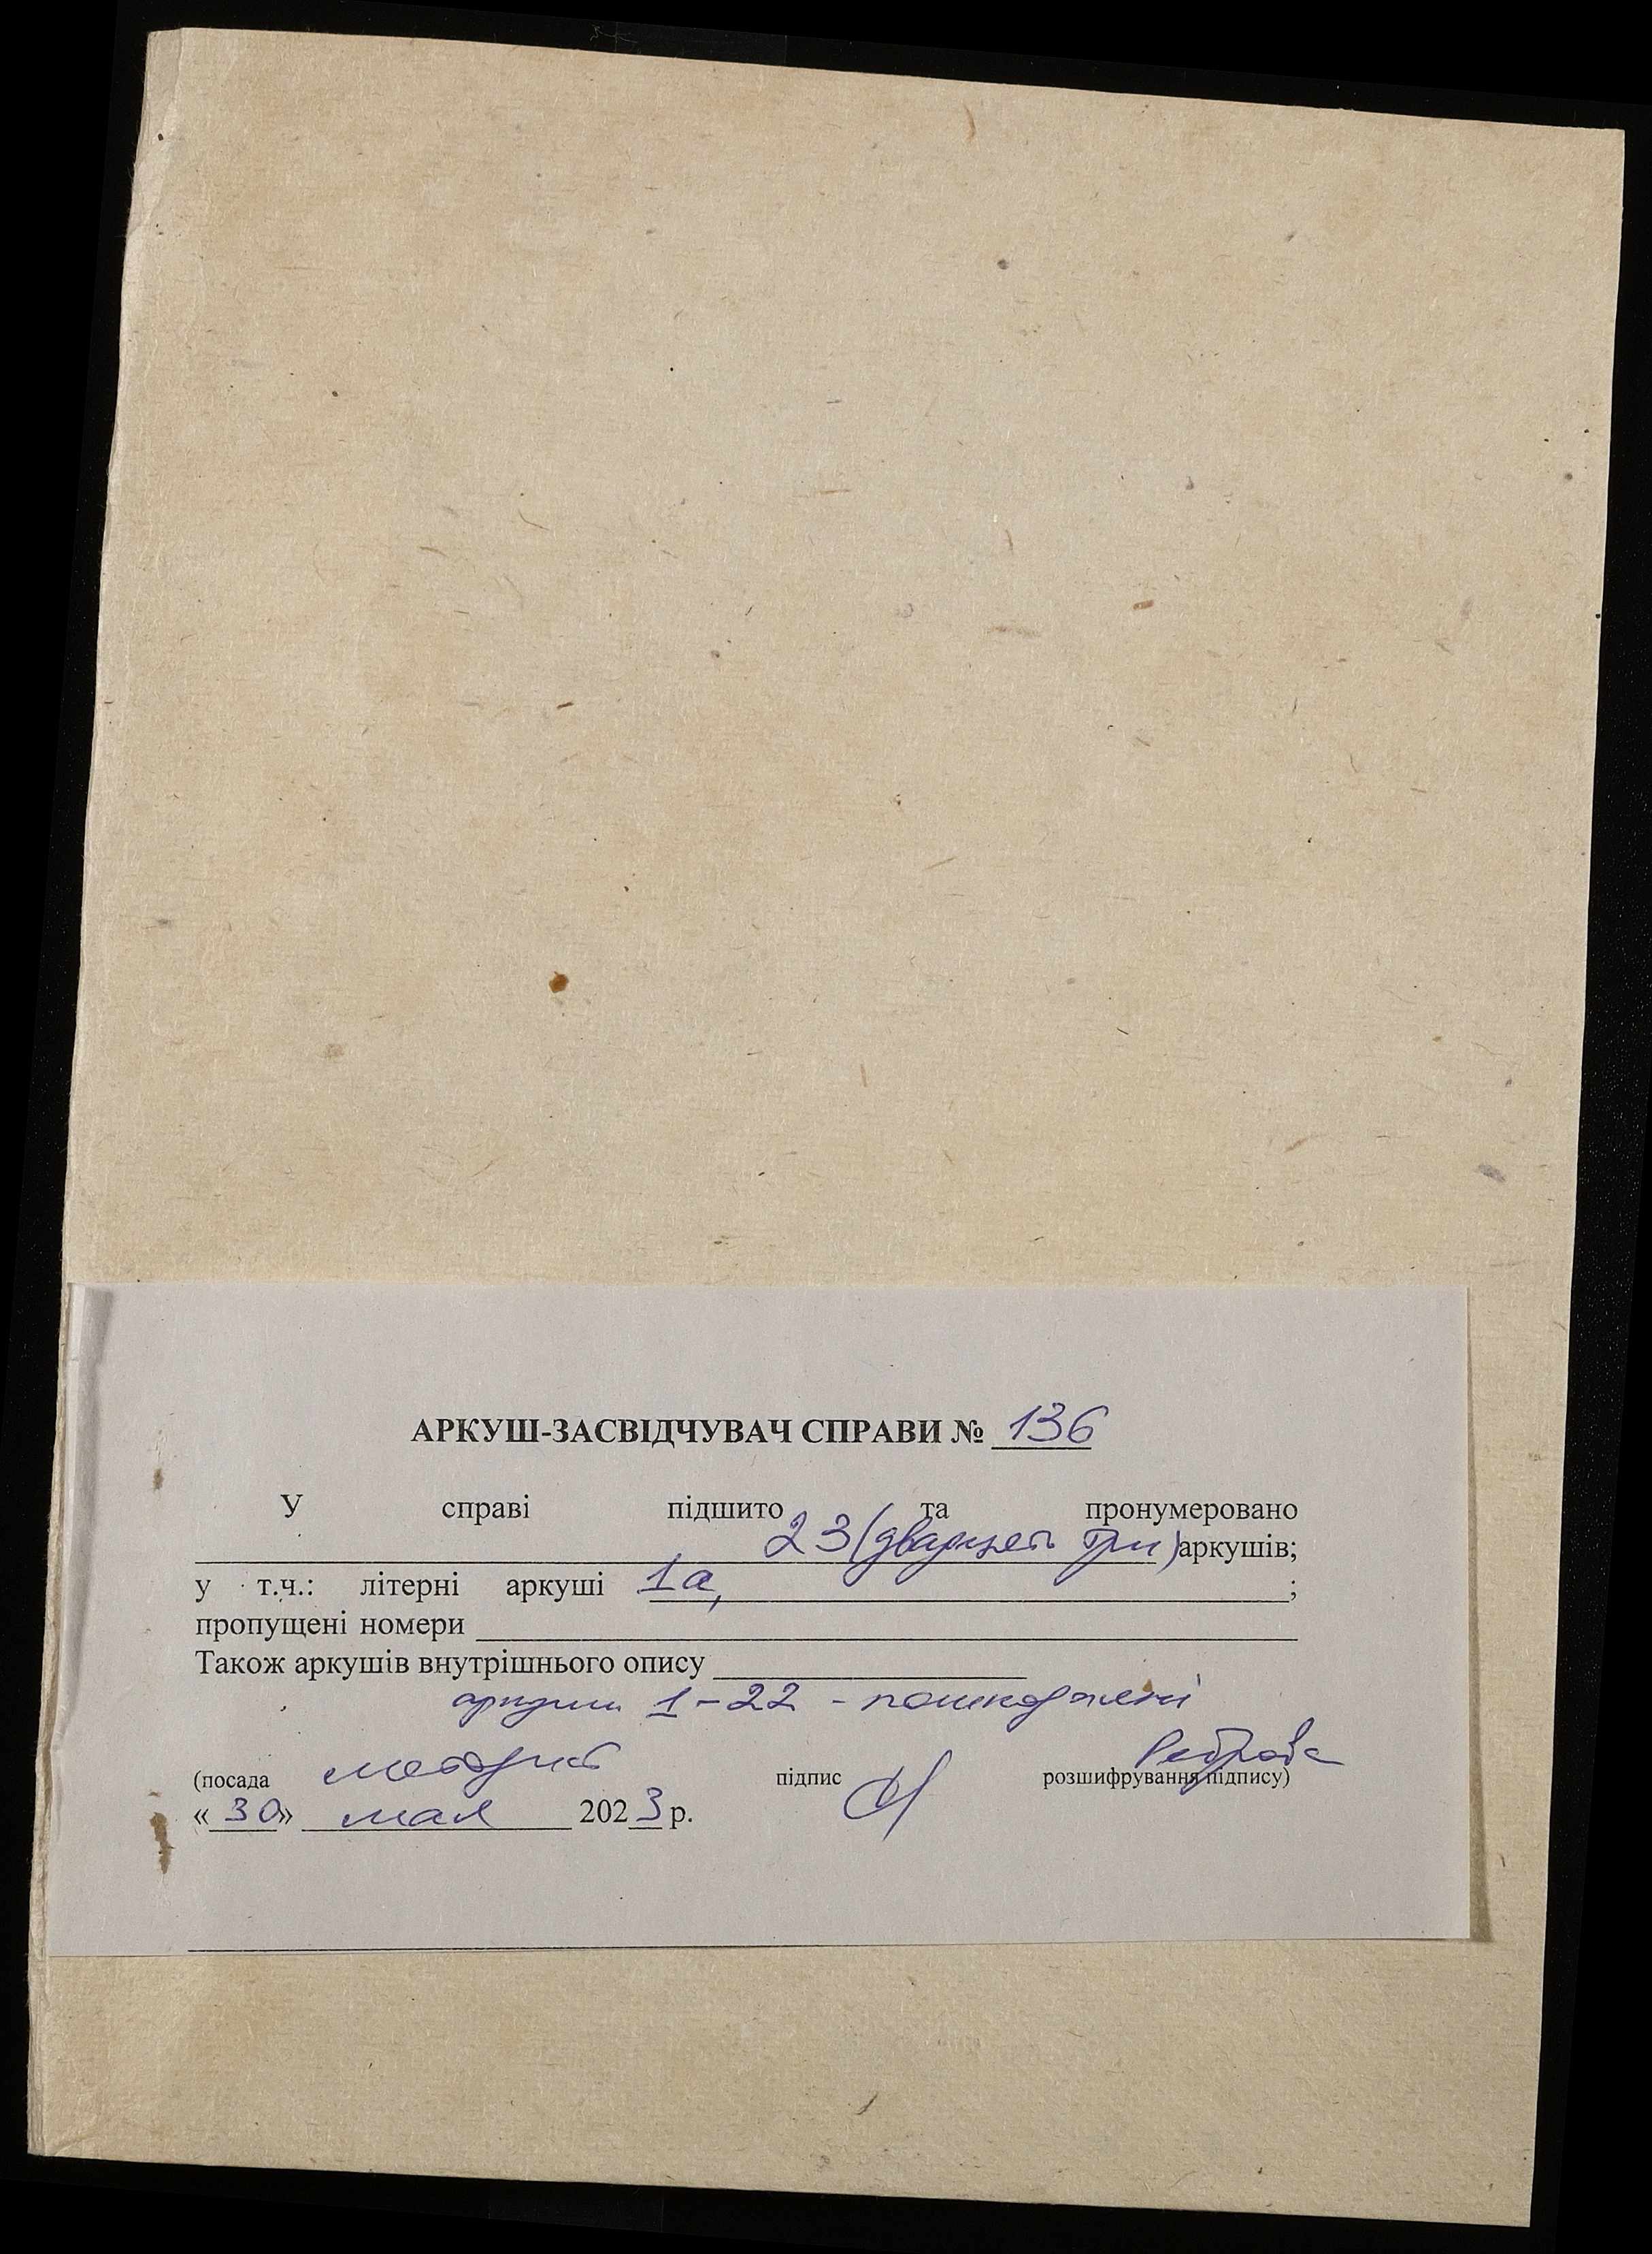 АРКУШ-ЗАСВІДЧУВАЧ СПРАВИ № 136
У справі підшито та пронумеровано
23 (двадцять три) аркушів;
у т.ч.: літерні аркуші 1а, ;
пропущені номери
Також аркушів внутрішнього опису
аркуши 1-22 - пошкоджені
(посада підпис розшифрування підпису)
« 30» мая 2023 р.